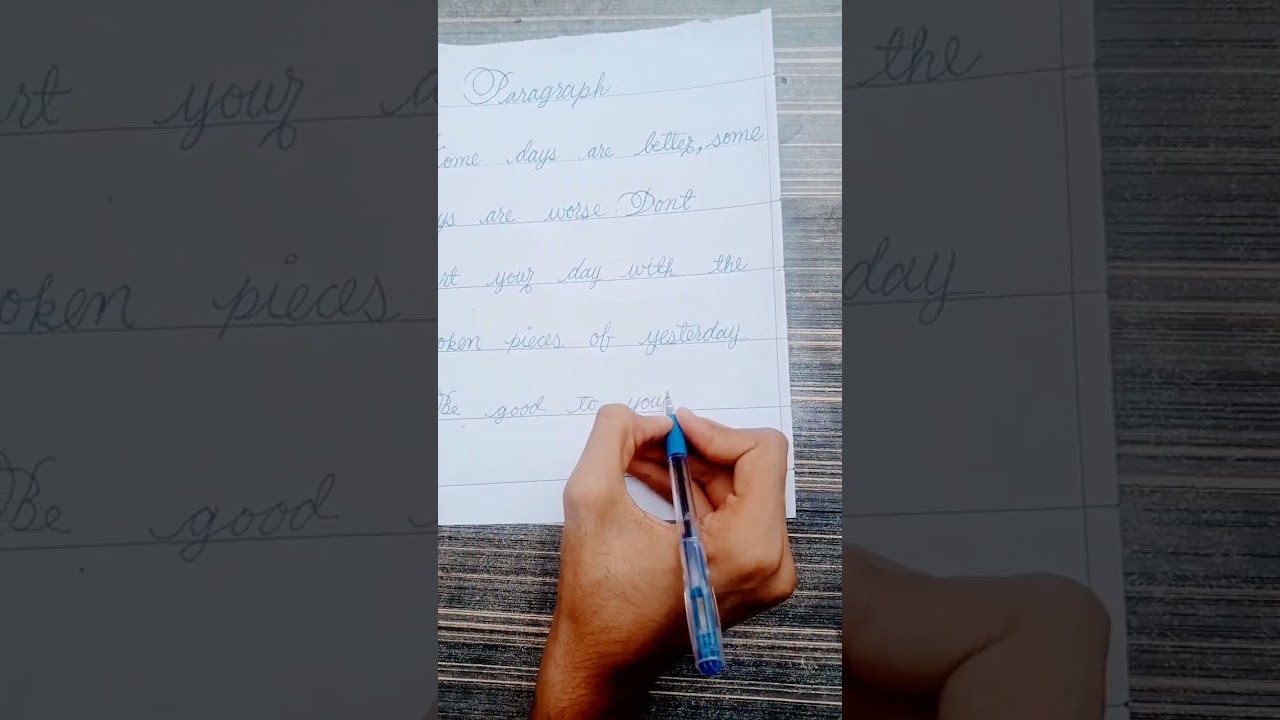 Paragraph
ome days are better, some
ys are worse. Dont
rt your day with the
oken pieces of yesterday
Be good to you